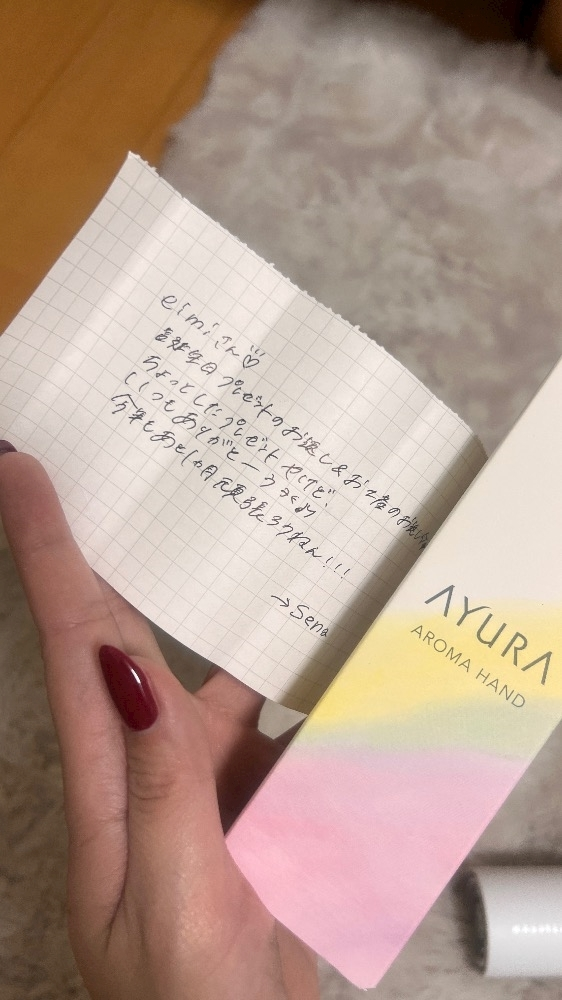 eimiさん♡
お誕生日プレゼントのお返し&お2度のお祝い
ちょっとしたプレゼントやけど!
いつもありがとーうっ
今年もあと1ヵ月元気頑張ろうねん!!!
→Sena
AYURA
AROMA HAND